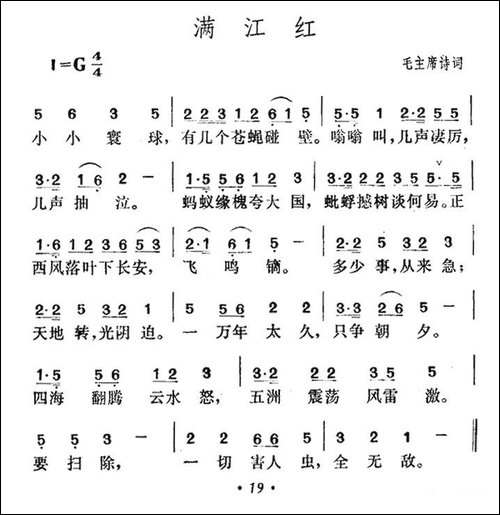 满江红
1=G 4/4 毛主席诗词
5 6 3 5 | 2 2 2 3 1 2 6 1 5 | 5·5 5 1 2·2 5 5 |
小小寰球,有几个苍蝇碰壁。嗡嗡叫,几声凄厉,
3·2 1 6 2 － | 1·5 5 6 1 2 1 | 3·2 2 2 3 5 5·5 |
几声抽泣。蚂蚁缘槐夸大国,蚍蜉撼树谈何易。正
1·6 1 2 3 6 5 3 | 2·1 6 1 5 － | 2·2 5 3 2 3 |
西风落叶下长安,飞鸣镝。多少事,从来急;
2·2 5 3 2 1 | 5 5 6 2 1 | 3·3 2 6 5 － |
天地转,光阴迫。一万年太久,只争朝夕。
1·5 5 6 1 2 3 | 3·2 2 2 3 5 5 － |
四海翻腾云水怒,五洲震荡风雷激。
5 5 3 － | 2 2 6 6 5 | 5 3 1 － |
要扫除,一切害人虫,全无敌。
·19·